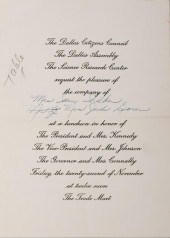 The Dallas Citizens Council
The Dallas Assembly
The Science Research Center
request the pleasure of
the company of
Mrs.
Mrs. John
at a luncheon in honor of
The President and Mrs. Kennedy
The Vice-President and Mrs. Johnson
The Governor and Mrs. Connally
Friday, the twenty-second of November
at twelve noon
The Trade Mart